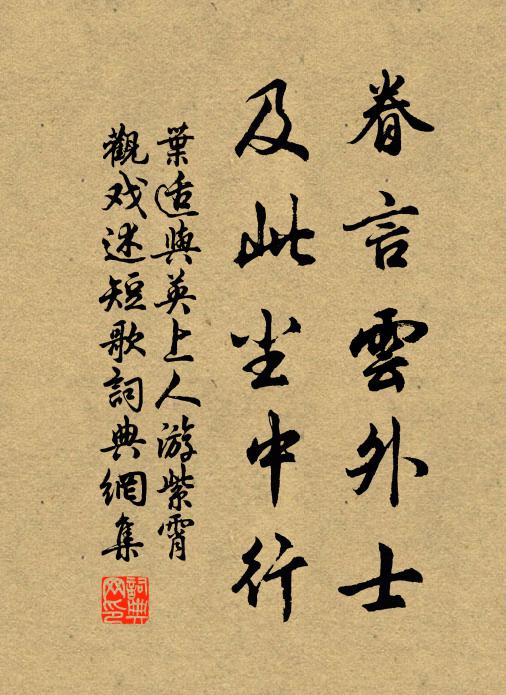 眷言雲外士
及此尘中行
葉适與英上人游紫霄
觀戏述短歌詞典網集
詞典网印